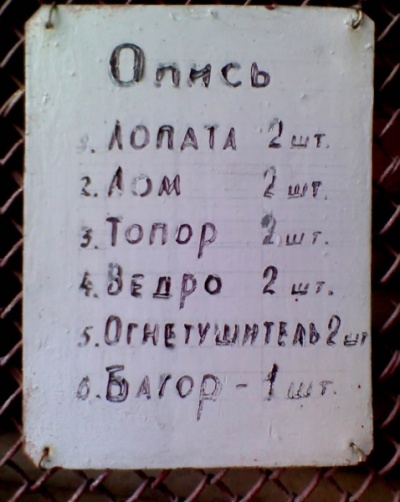 Опись
1. ЛОПАТА 2 шт.
2. Лом 2 шт.
3. Топор 2 шт.
4. ВЕДРО 2 шт.
5. ОГНЕТУШИТЕЛЬ 2 шт
6. БАГОР - 1 шт.